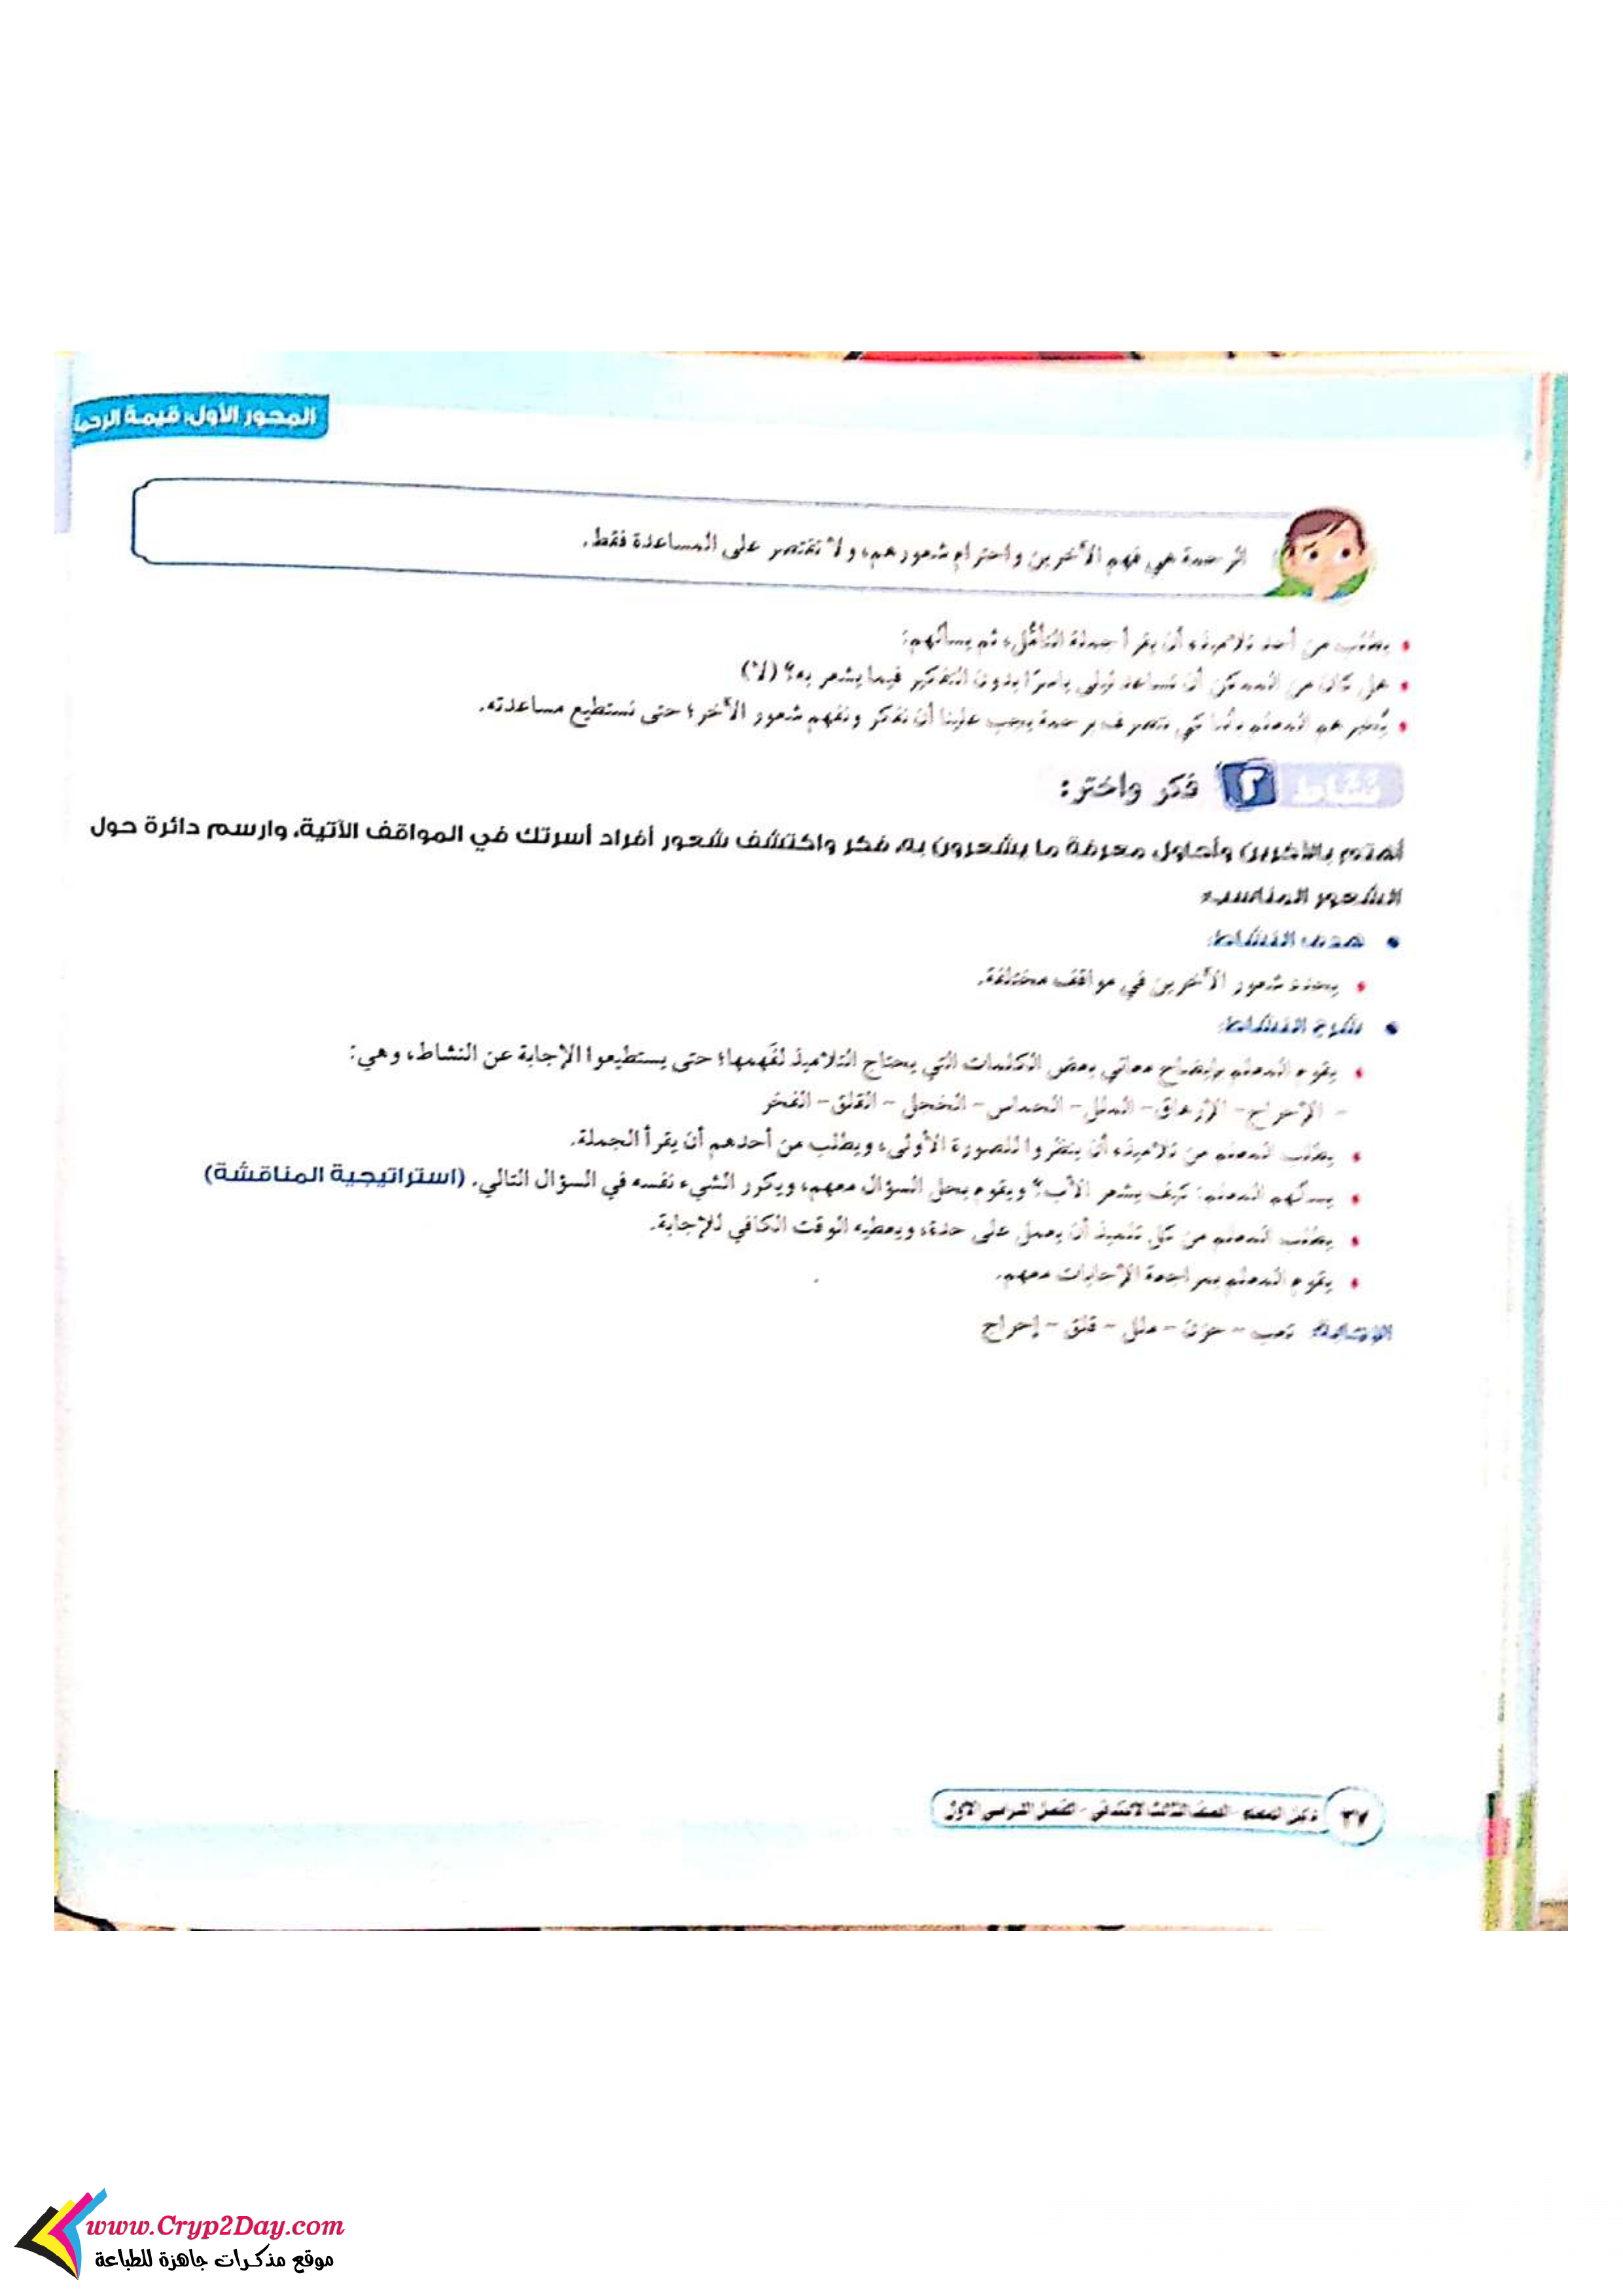 المحور الأول: قيمة الرحمة
الرحمة هي فهم الآخرين واحترام شعورهم، ولا تقتصر على المساعدة فقط.
• يطلب من أحد تلاميذه أن يقرأ جملة التأمل، ثم يسألهم:
• هل كان من الممكن أن تساعد ليلى ياسرًا بدون التفكير فيما يشعر به؟ (لا)
• يُخبرهم المعلم بأننا كي نتصرف برحمة يجب علينا أن نفكر ونفهم شعور الآخر؛ حتى نستطيع مساعدته.
نشاط ٢ فكر واختر:
أهتم بالآخرين وأحاول معرفة ما يشعرون به. فكر واكتشف شعور أفراد أسرتك في المواقف الآتية، وارسم دائرة حول
الشعور المناسب:
• هدف النشاط:
• يحدد شعور الآخرين في مواقف مختلفة.
• شرح النشاط:
• يقوم المعلم بإيضاح معاني بعض الكلمات التي يحتاج التلاميذ لفهمها؛ حتى يستطيعوا الإجابة عن النشاط، وهي:
- الإحراج- الإرهاق- الملل- الحماس- الخجل- القلق- الفخر
• يطلب المعلم من تلاميذه أن ينظروا للصورة الأولى، ويطلب من أحدهم أن يقرأ الجملة.
• يسألهم المعلم: كيف يشعر الأب؟ ويقوم بحل السؤال معهم، ويكرر الشيء نفسه في السؤال التالي. (استراتيجية المناقشة)
• يطلب المعلم من كل تلميذ أن يعمل على حدة، ويعطيه الوقت الكافي للإجابة.
• يقوم المعلم بمراجعة الإجابات معهم.
الإجابة: تعب - حزن - ملل - قلق - إحراج
٣٧ دليل المعلم - الصف الثالث الابتدائي - الفصل الدراسي الأول
www.Cryp2Day.com
موقع مذكرات جاهزة للطباعة